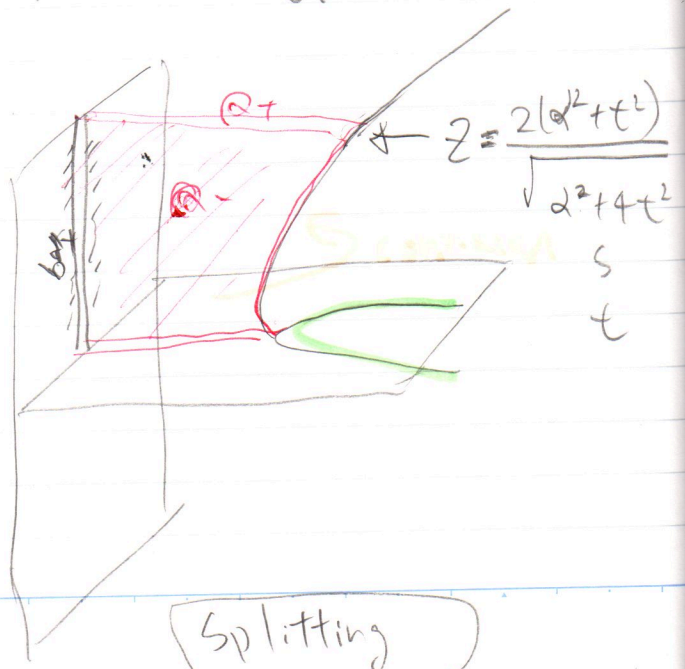 Q+
Z = 2(α²+t²) / √α²+4t²
Q-
s
t
Splitting